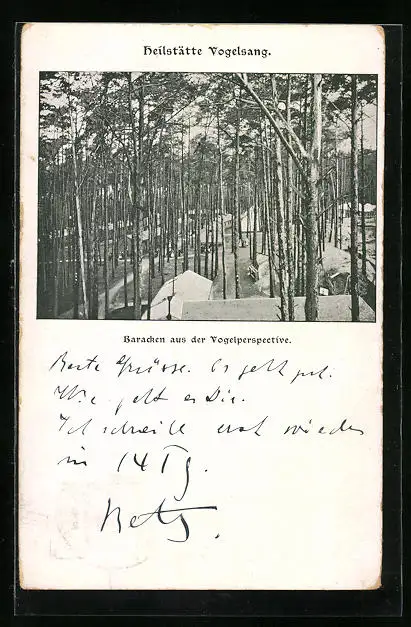 Heilstätte Vogelsang.
Baracken aus der Vogelperspective.
Beste Grüsse. Es geht gut.
Wie geht es Dir.
Ich schreibe erst wieder
in 14 Tg.